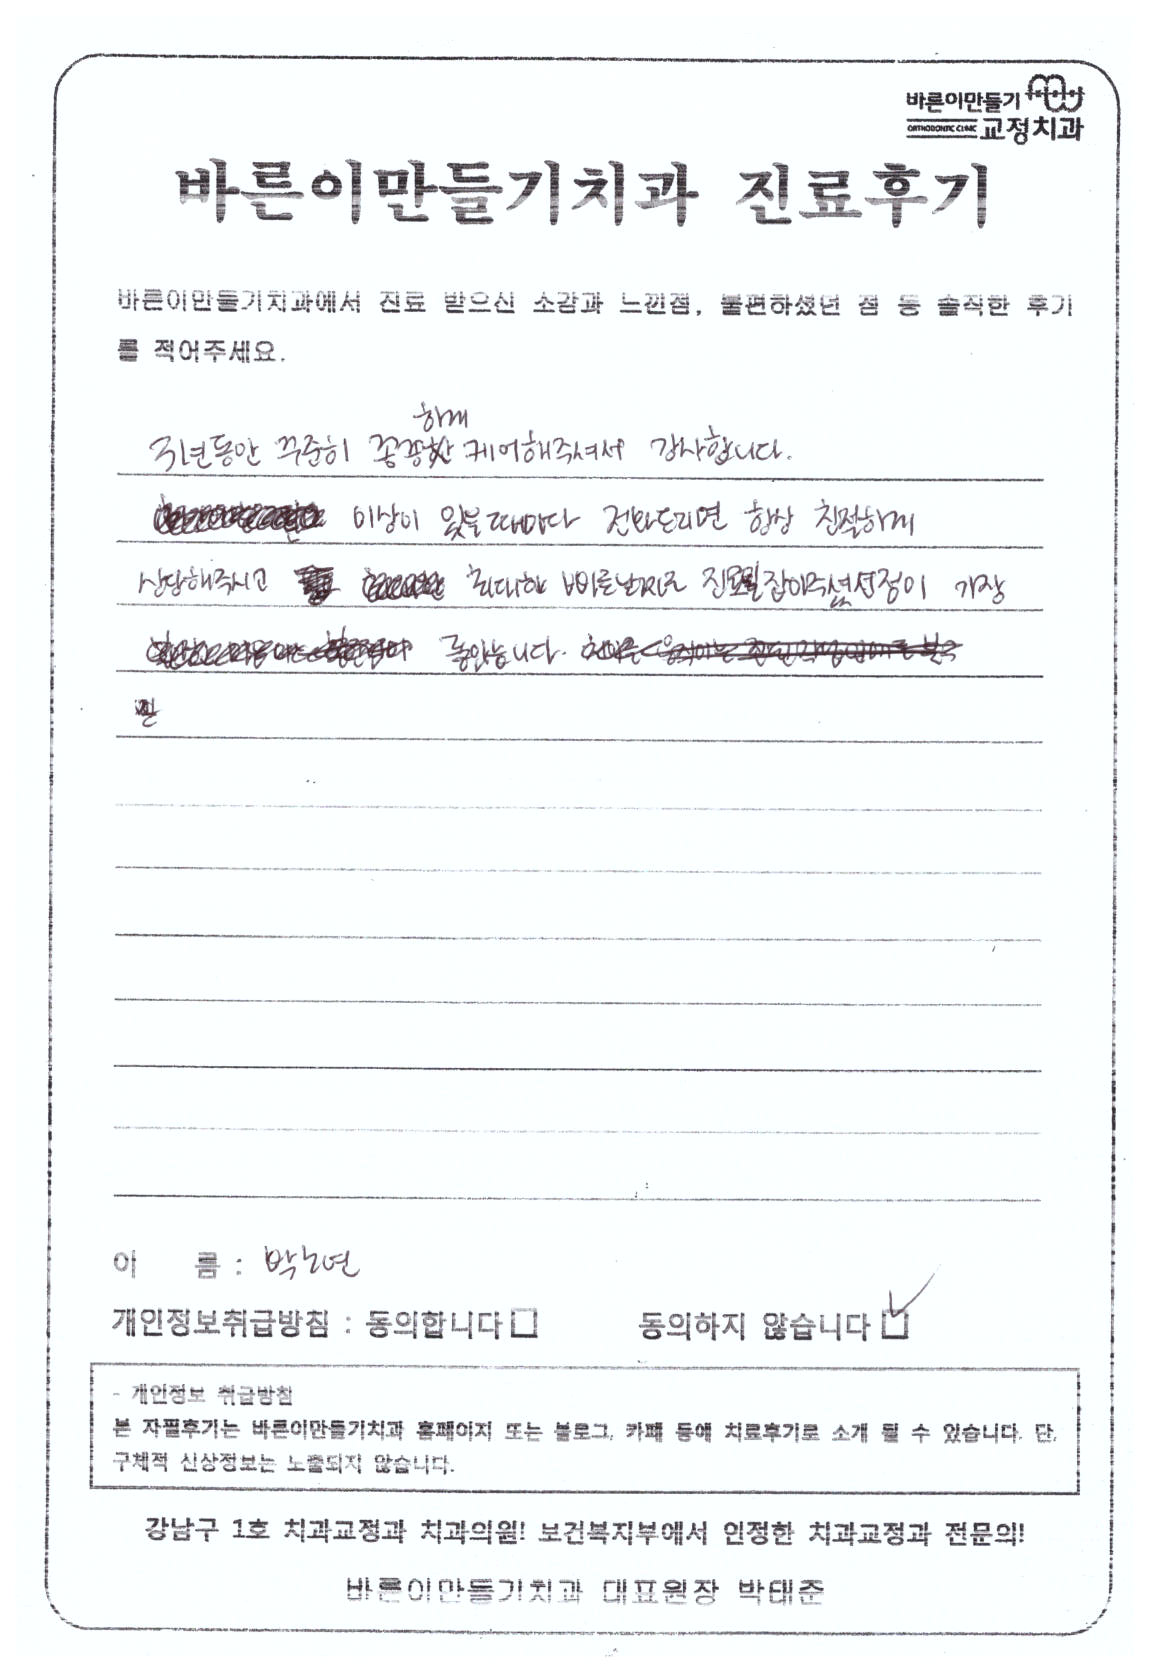 바른이만들기
ORTHODONTIC CLINIC 교정치과
바른이만들기치과 진료후기
바른이만들기치과에서 진료 받으신 소감과 느낀점, 불편하셨던 점 등 솔직한 후기
를 적어주세요.
하게
긴년동안 꾸준히 꼼꼼 케어해주셔서 감사합니다.
이상이 있을때마다 전화드리면 항상 친절하게
상담해주시고 최대한 빠른날짜로 진료일잡아주셨던점이 가장
좋았습니다.
이 름 : 박노연
개인정보취급방침 : 동의합니다 □ 동의하지 않습니다 ☑
- 개인정보 취급방침
본 자필후기는 바른이만들기치과 홈페이지 또는 블로그, 카페 등에 치료후기로 소개 될 수 있습니다. 단,
구체적 신상정보는 노출되지 않습니다.
강남구 1호 치과교정과 치과의원! 보건복지부에서 인정한 치과교정과 전문의!
바른이만들기치과 대표원장 박태준